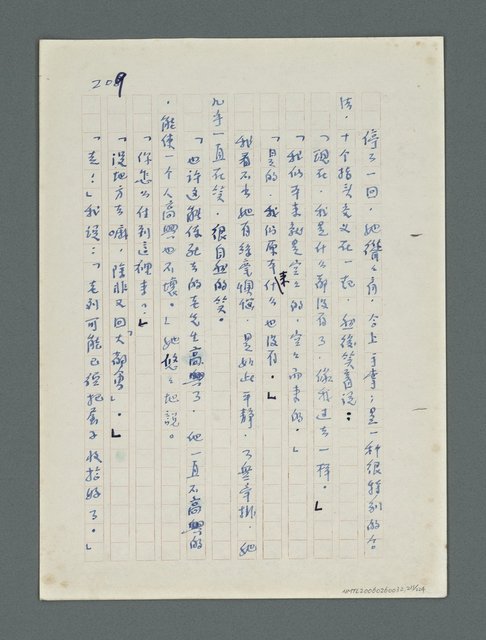 209
停了一回，她聳々肩，合上手掌；是一種很特別的合
法，十个指头交叉在一起，然後笑着說：
「現在，我是什么都沒有了，像我過去一样。」
「我们本來就是空々的，空々而來的。」
「是的，我们原本來什么也沒有。」
我看不出她有絲毫懊惱，是如此平静，了無牽掛，她
几乎一直在笑，很自然的笑。
「也許這能使死去的毛先生高興了，他一直不高興的
，能使一个人高興也不壞。」她悠々地說。
「你怎么住到這裡來？」
「沒地方去嘛，除非又回大都會」。」
「走！」我說：「走到可能已經把屋子收拾好了。」
NMTL20060260032,211/224